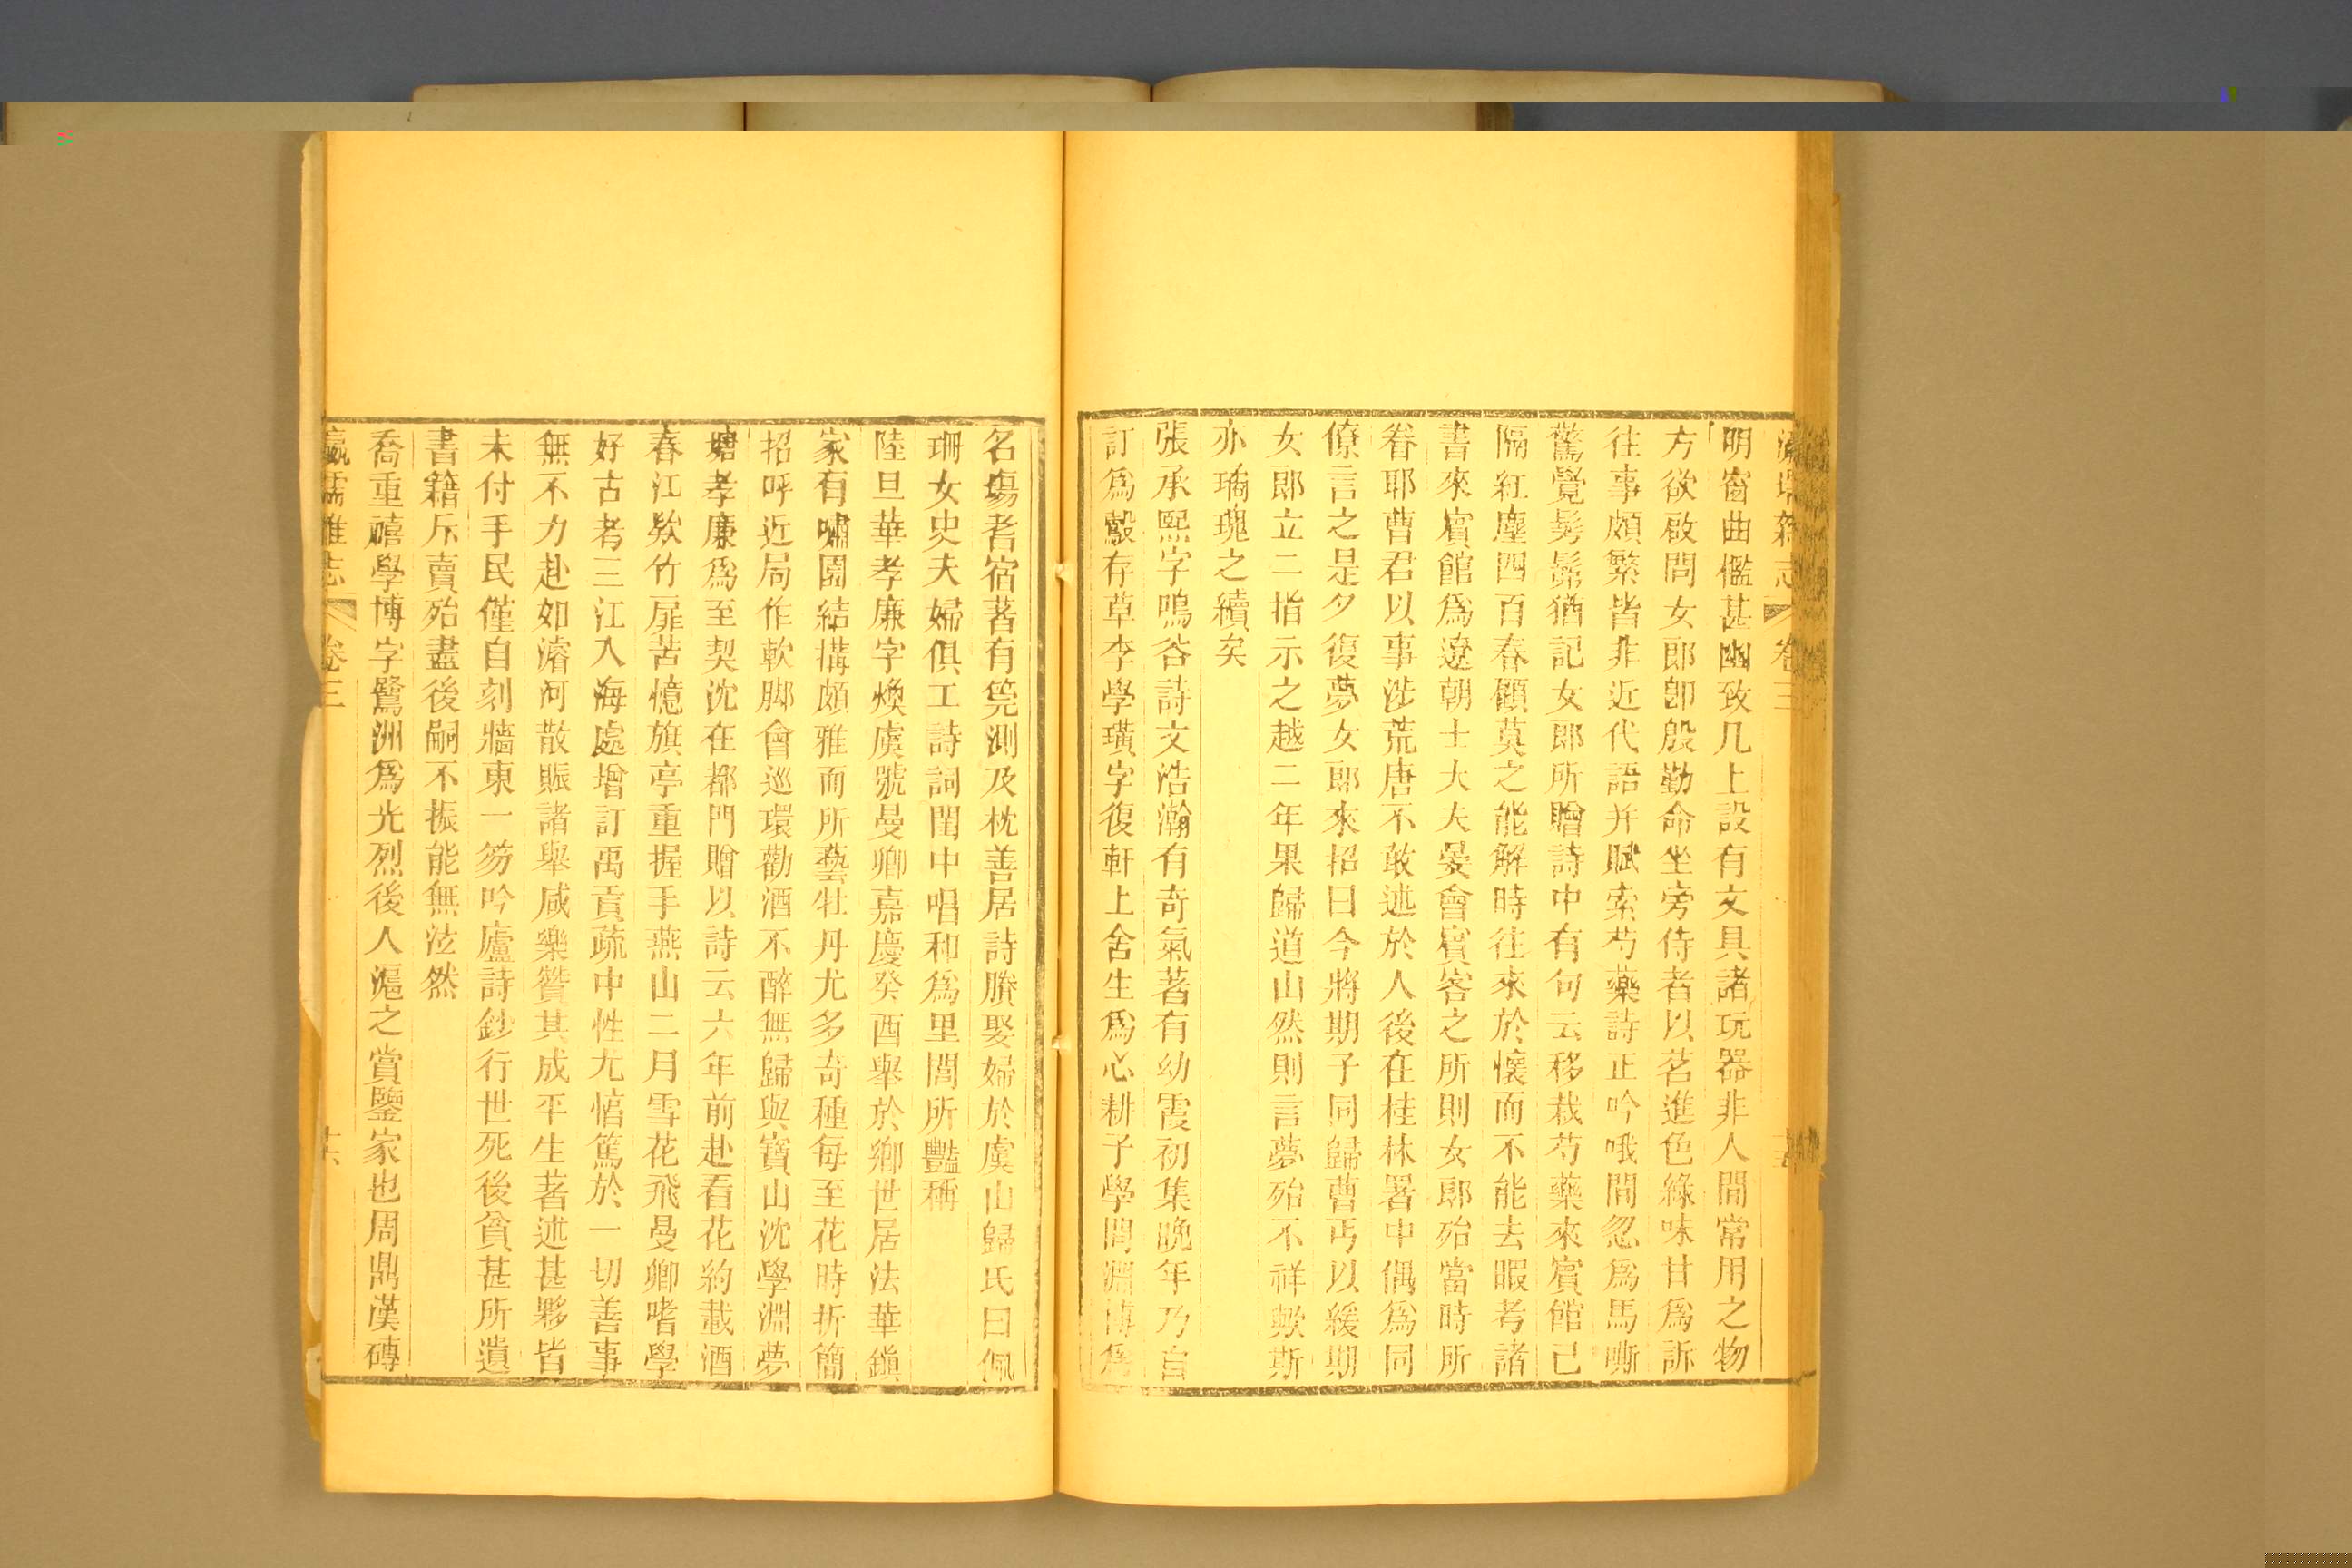 瀛壖雜志 卷三
明窗曲檻甚幽致几上設有文具諸玩器非人間常用之物
方欲啟問女郎卽殷勤命坐旁侍者以茗進色綠味甘爲訴
往事頗繁皆非近代語并賦索芍藥詩正吟哦間忽爲馬嘶
驚覺髣髴猶記女郎所贈詩中有句云移栽芍藥來賓館已
隔紅塵四百春顧莫之能解時往來於懷而不能去暇考諸
書來賓館爲遼朝士大夫晏會賓客之所則女郎殆當時所
眷耶曹君以事涉荒唐不敢述於人後在桂林署中偶爲同
僚言之是夕復夢女郎來招曰今將期子同歸曹丐以緩期
女郎立二指示之越二年果歸道山然則言夢殆不祥歟斯
亦瑀瑰之續矣
張承熙字鳴谷詩文浩瀚有奇氣著有幼霞初集晚年乃自
訂爲鷇存草李學璜字復軒上舍生爲心耕子學問淵博爲
名場耆宿著有筦測及枕善居詩賸娶婦於虞山歸氏曰佩
珊女史夫婦俱工詩詞閨中唱和爲里閭所豔稱
陸旦華孝廉字煥虞號曼卿嘉慶癸酉舉於鄉世居法華鎭
家有嘯園結搆頗雅而所藝牡丹尤多奇種每至花時折簡
招呼近局作軟脚會巡環勸酒不醉無歸與寶山沈學淵夢
塘孝廉爲至契沈在都門贈以詩云六年前赴看花約載酒
春江欸竹扉苦憶旗亭重握手燕山二月雪花飛曼卿嗜學
好古考三江入海處增訂禹貢疏中性尤愭篤於一切善事
無不力赴如濬河散賑諸舉咸樂贊其成平生著述甚夥皆
未付手民僅自刻牆東一笏吟廬詩鈔行世死後貧甚所遺
書籍斥賣殆盡後嗣不振能無泫然
喬重禧學博字鷺洲爲光烈後人滬之賞鑒家也周鼎漢磚
瀛壖雜志 卷三 十六